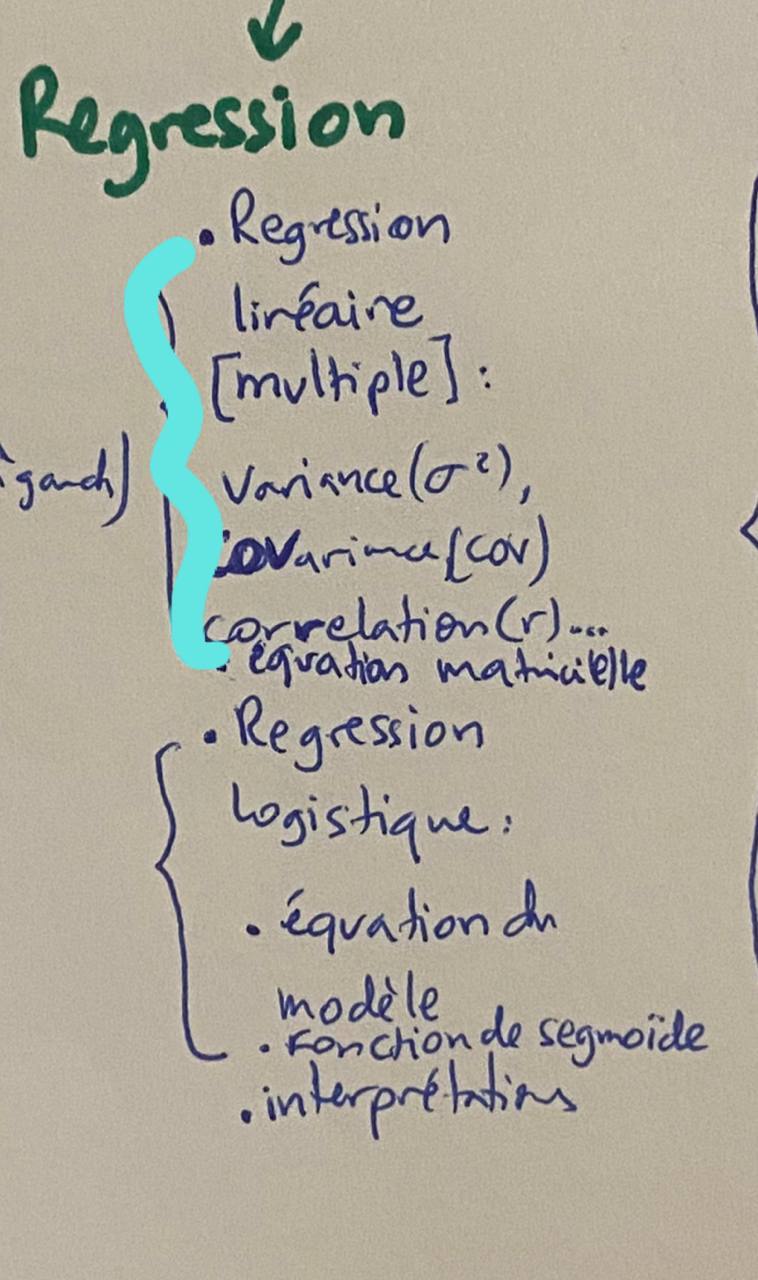 Regression
. Regression
linéaire
[multiple] :
variance (σ²),
covariance (cov)
correlation (r)...
. équation matricielle
. Regression
logistique :
. équation du
modèle
. Fonction de segmoïde
. interprétations